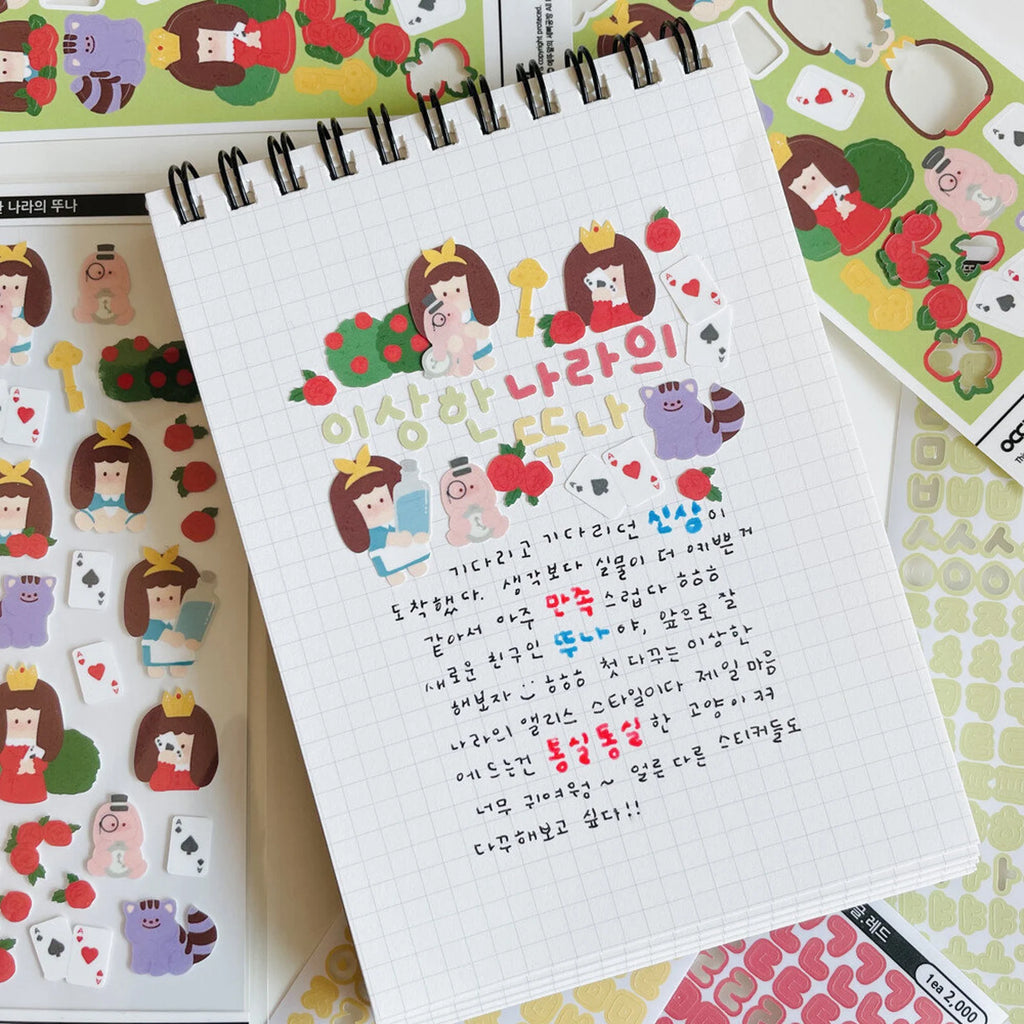 한 나라의 뚜나
이상한 나라의
뚜나
기다리고 기다리던 신상이
도착했다. 생각보다 실물이 더 예쁜거
같아서 아주 만족스럽다 ㅎㅎㅎ
새로운 친구인 뚜나야, 앞으로 잘
해보자 ㅎㅎㅎ 첫 다꾸는 이상한
나라의 앨리스 스타일이다 제일 마음
에 드는건 통실통실한 고양이 ㅋㅋ
너무 귀여웡~ 얼른 다른 스티커들도
다꾸해보고 싶다!!
글.레드
1ea 2,000